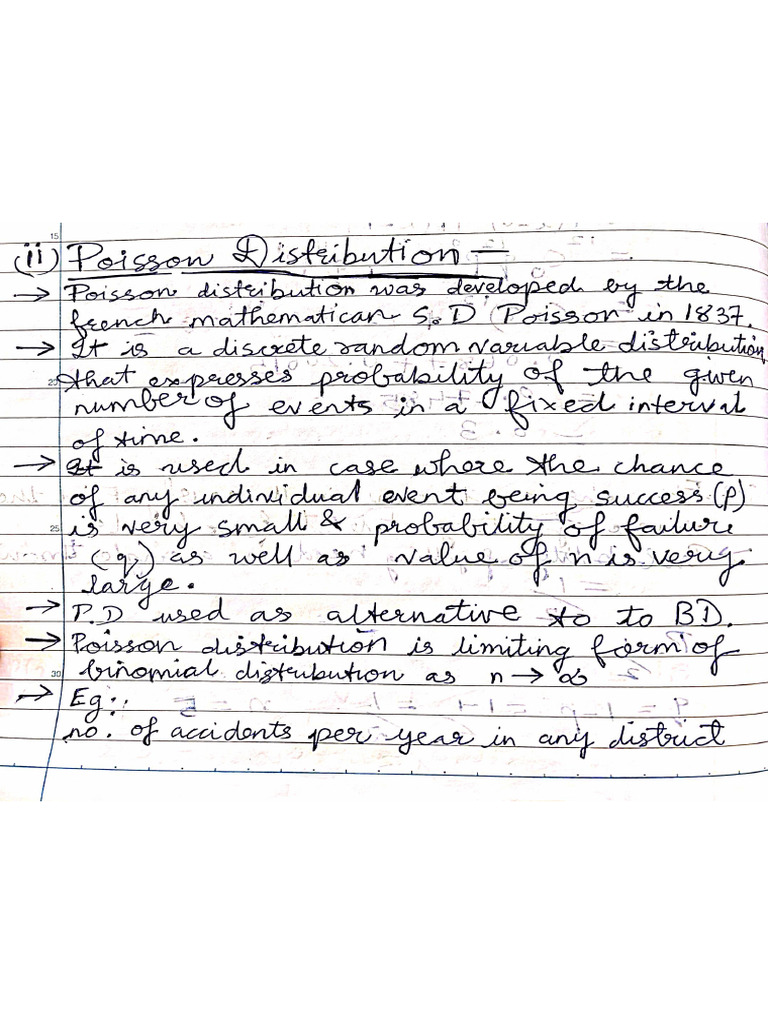 (ii) Poisson Distribution —
→ Poisson distribution was developed by the
french mathematican S. D Poisson in 1837.
→ It is a discrete random variable distribution
that expresses probability of the given
number of events in a fixed interval
of time.
→ It is used in case where the chance
of any individual event being success (p)
is very small & probability of failure
(q) as well as value of n is very
large.
→ P.D used as alternative to to BD.
→ Poisson distribution is limiting form of
binomial distribution as n → ∞
→ Eg:.
no. of accidents per year in any district